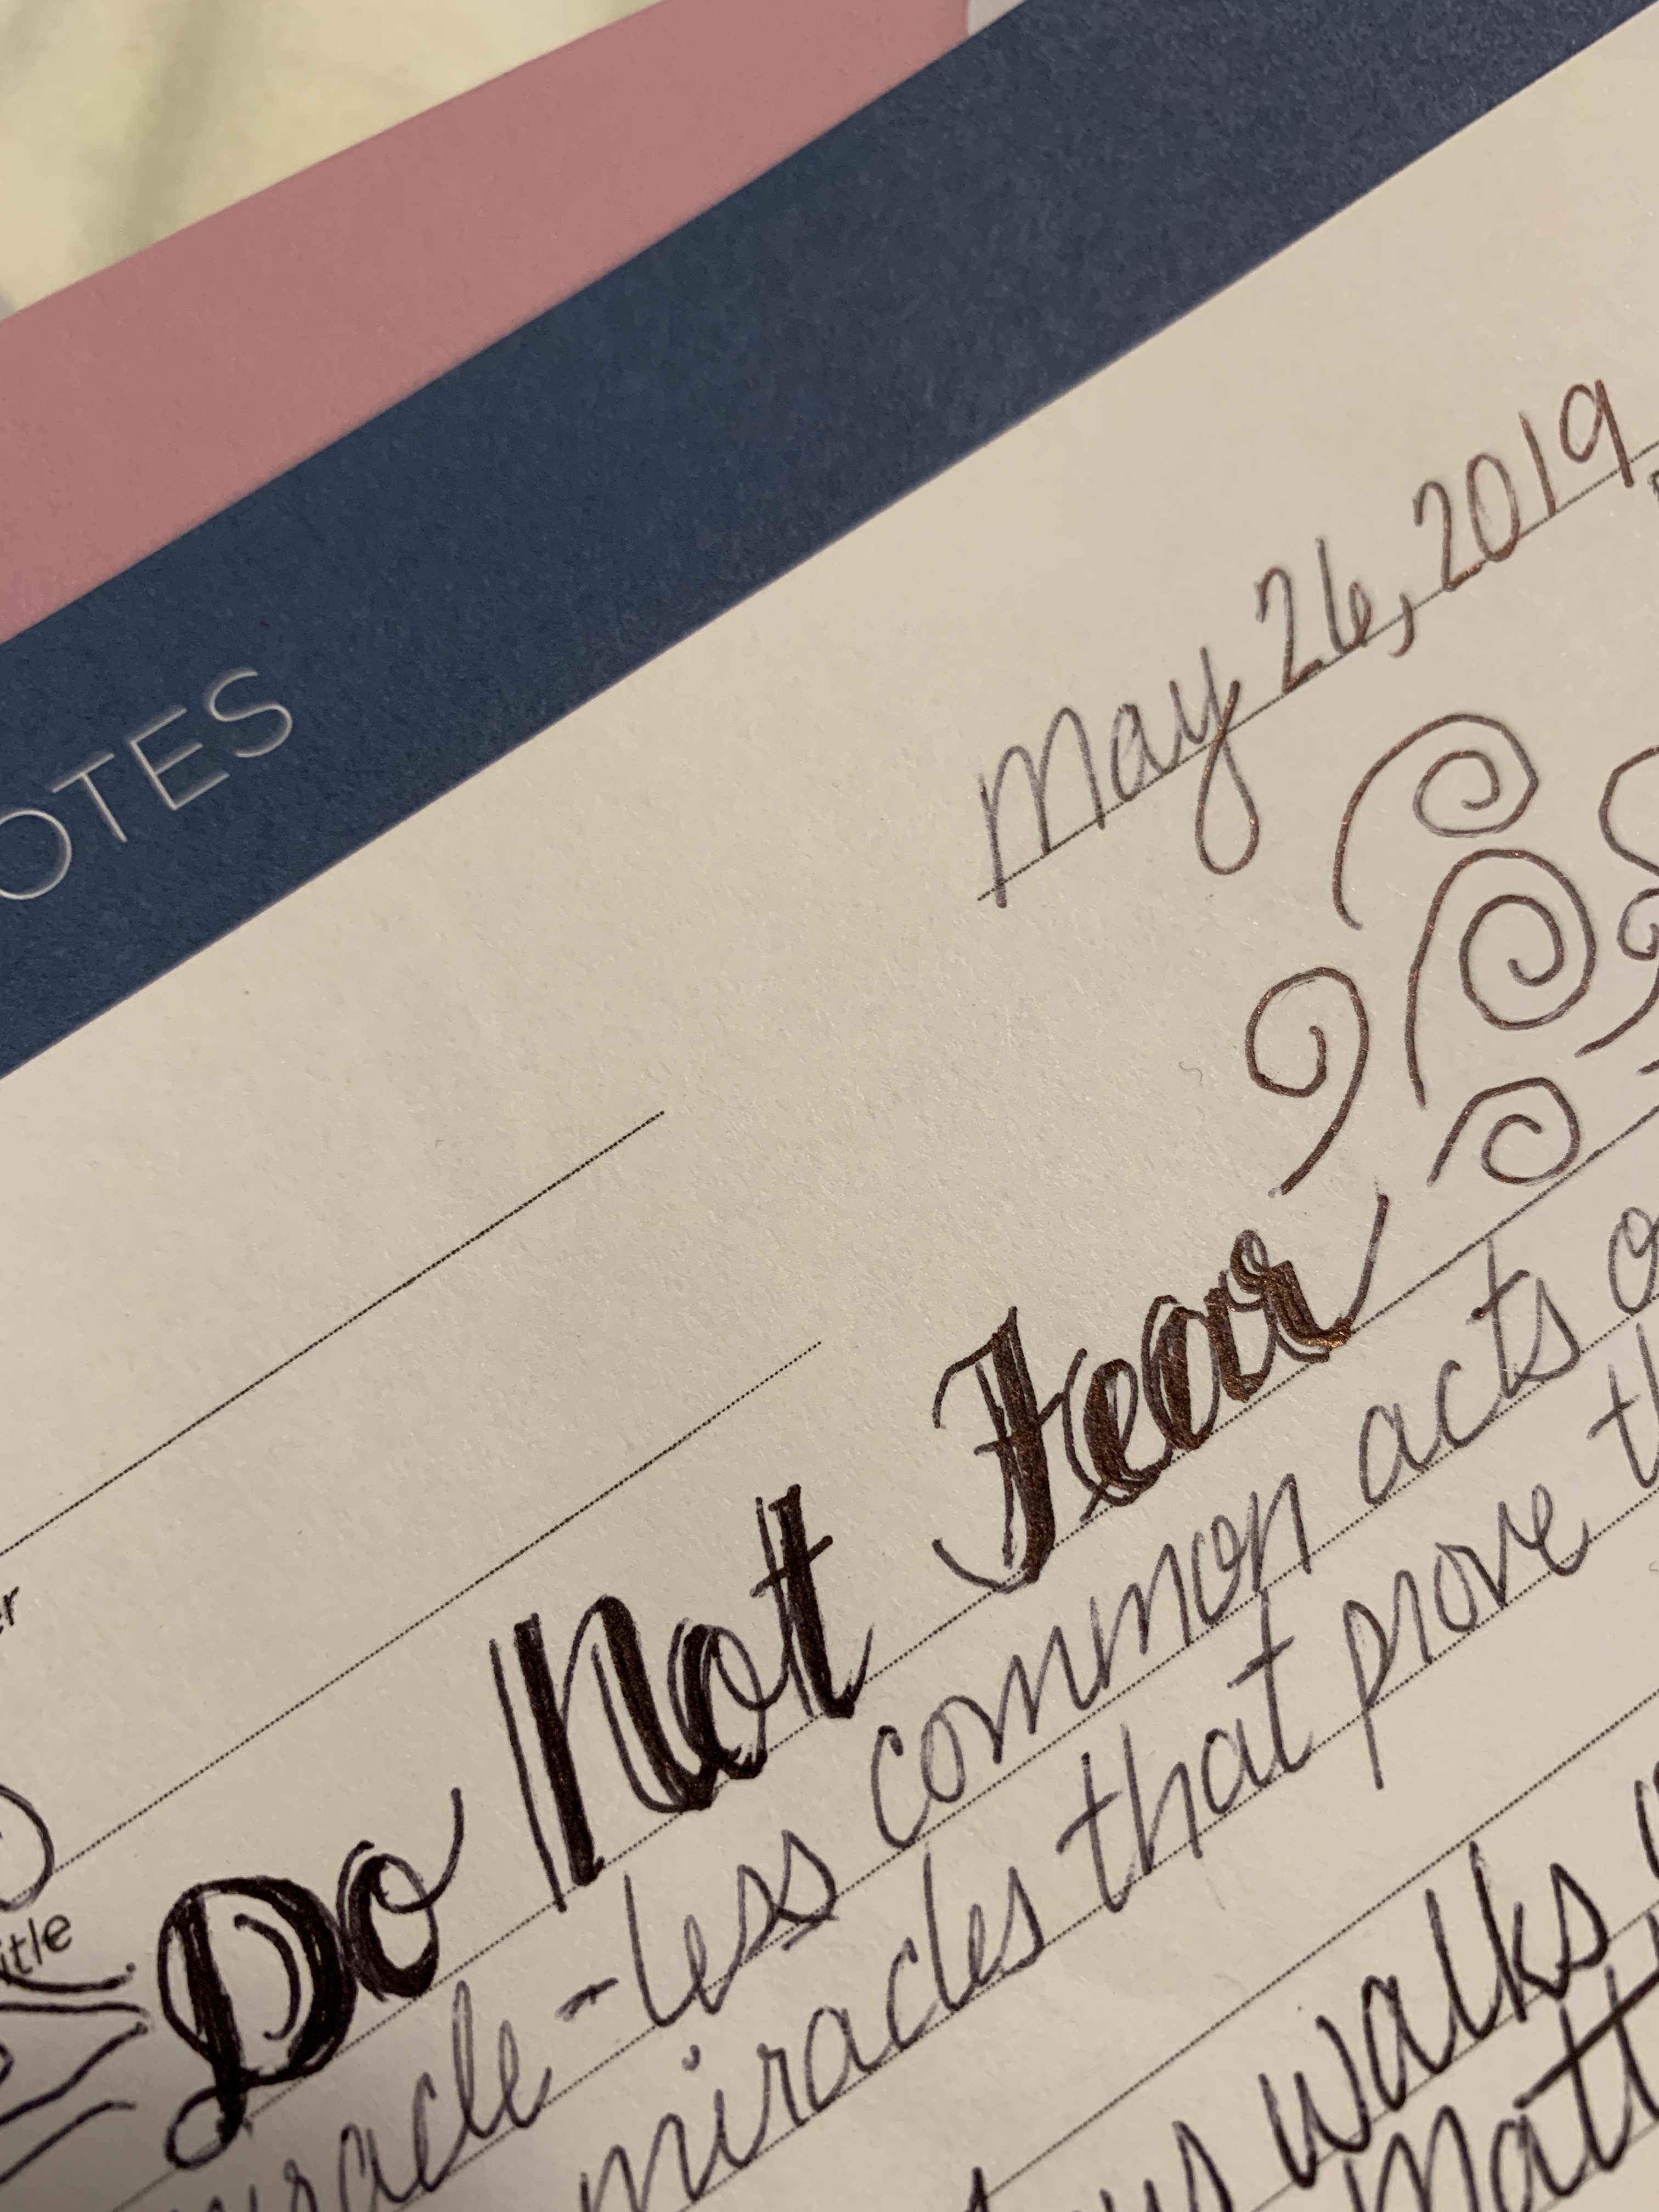 OTES
May 26, 2019
er
itle
Do Not Fear
racle-less common acts
miracles that prove
walks,
Matt